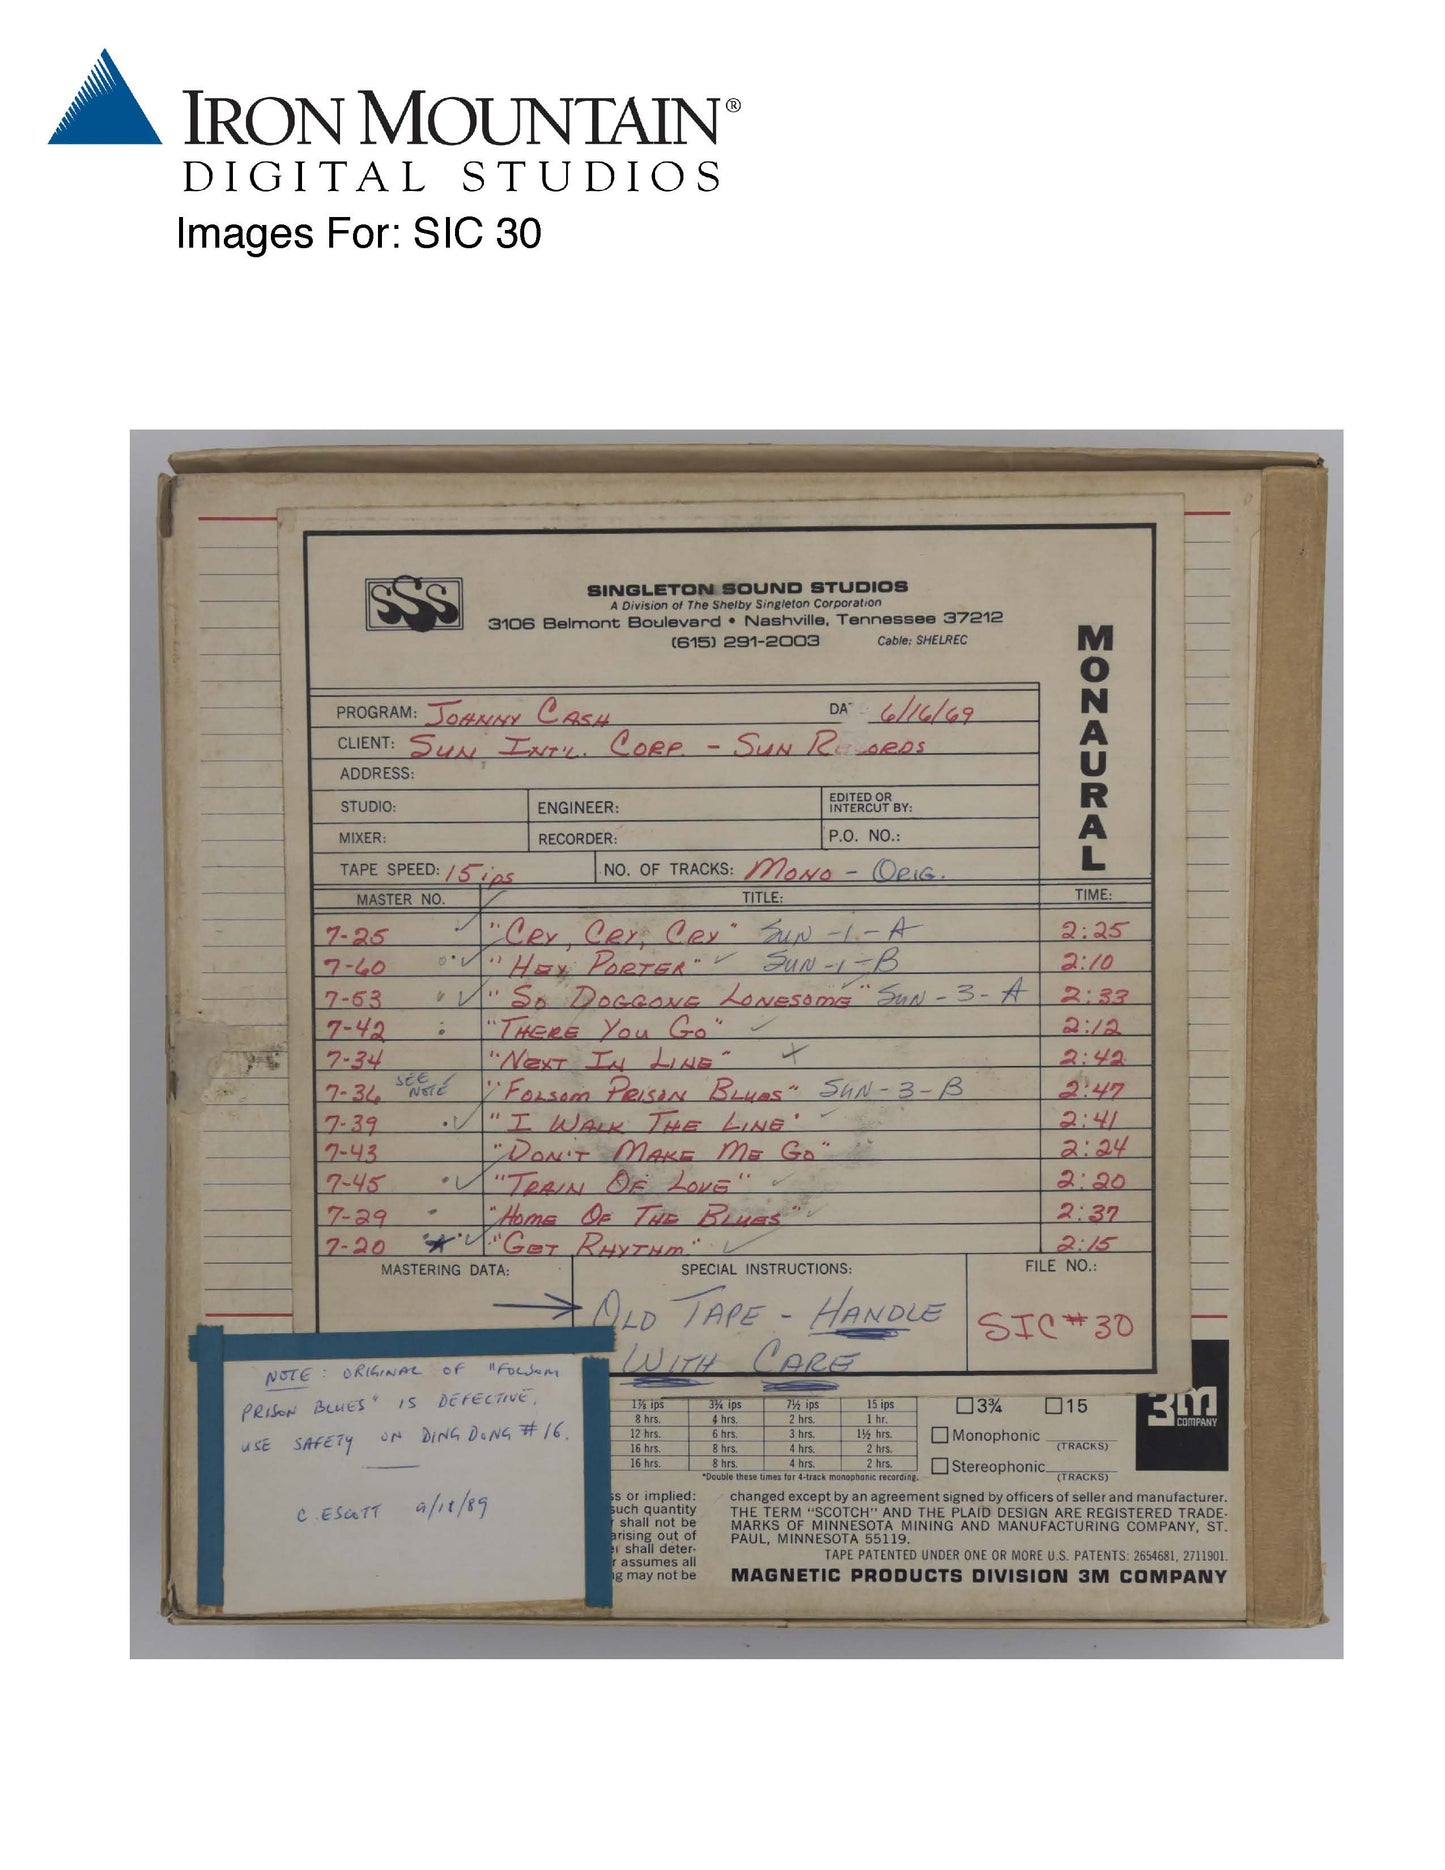 IRON MOUNTAIN®
DIGITAL STUDIOS
Images For: SIC 30
SSS
SINGLETON SOUND STUDIOS
A Division of The Shelby Singleton Corporation
3106 Belmont Boulevard • Nashville, Tennessee 37212
(615) 291-2003 Cable: SHELREC
MONAURAL
PROGRAM: JOHNNY CASH DA 6/16/69
CLIENT: SUN INT'L. CORP. - SUN RECORDS
ADDRESS:
STUDIO: ENGINEER: EDITED OR INTERCUT BY:
MIXER: RECORDER: P.O. NO.:
TAPE SPEED: 15 ips NO. OF TRACKS: MONO - ORIG.
MASTER NO. TITLE: TIME:
7-25 ✓ "CRY, CRY, CRY" SUN-1-A 2:25
7-60 ✓ "HEY PORTER" ✓ SUN-1-B 2:10
7-53 ✓ "SO DOGGONE LONESOME" SUN-3-A 2:33
7-42 "THERE YOU GO" ✓ 2:12
7-34 "NEXT IN LINE" 2:42
7-36 SEE NOTE ✓ "FOLSOM PRISON BLUES" SUN-3-B 2:47
7-39 ✓ "I WALK THE LINE" 2:41
7-43 "DON'T MAKE ME GO" 2:24
7-45 ✓ "TRAIN OF LOVE" ✓ 2:20
7-29 "HOME OF THE BLUES" ✓ 2:37
7-20 ✓ "GET RHYTHM" ✓ 2:15
MASTERING DATA: SPECIAL INSTRUCTIONS: FILE NO.:
→ OLD TAPE - HANDLE
WITH CARE
SIC #30
NOTE: ORIGINAL OF "FOLSOM
PRISON BLUES" IS DEFECTIVE.
USE SAFETY ON DING DONG #16.
C. ESCOTT 9/18/89
1⅞ ips 3¾ ips 7½ ips 15 ips
8 hrs. 4 hrs. 2 hrs. 1 hr.
12 hrs. 6 hrs. 3 hrs. 1½ hrs.
16 hrs. 8 hrs. 4 hrs. 2 hrs.
16 hrs. 8 hrs. 4 hrs. 2 hrs.
*Double these times for 4-track monophonic recording.
☐ 3¾ ☐ 15
☐ Monophonic
(TRACKS)
☐ Stereophonic
(TRACKS)
3M
COMPANY
ss or implied:
such quantity
shall not be
arising out of
shall deter-
r assumes all
g may not be
changed except by an agreement signed by officers of seller and manufacturer.
THE TERM "SCOTCH" AND THE PLAID DESIGN ARE REGISTERED TRADE-
MARKS OF MINNESOTA MINING AND MANUFACTURING COMPANY, ST.
PAUL, MINNESOTA 55119.
TAPE PATENTED UNDER ONE OR MORE U.S. PATENTS: 2654681, 2711901.
MAGNETIC PRODUCTS DIVISION 3M COMPANY